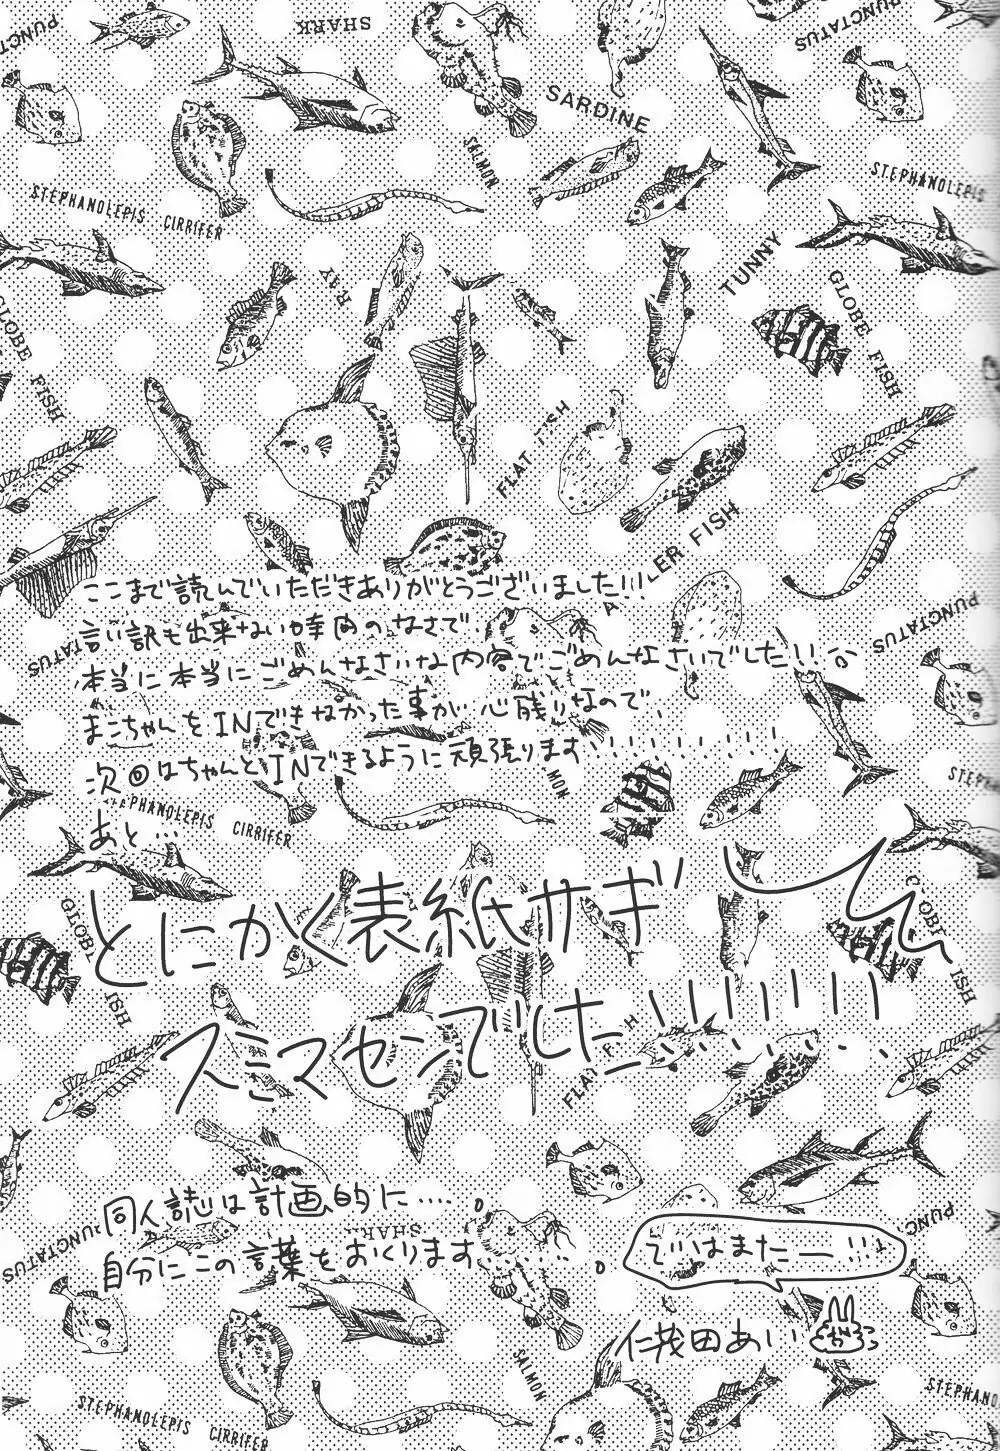 PUNCT
SHARK
PUNCTATUS
SARDINE
SALMON
STEPHANOLEPIS CIRRIFER
STEPHANOLEPIS
RAY
TUNNY
GLOBE FISH
GLOBE FISH
FLAT FISH
ER FISH
PUNCTATUS
TATUS
ここまで読んでいただきありがとうございました!!
言い訳も出来ない時間のなさで
本当に本当にごめんなさいな内容でごめんなさいでした!!
まこちゃんをINできなかった事が心残りなので、
次回はちゃんとINできるように頑張ります!!!!!!!!
MON
STEP
PHANOLEPIS CIRRIFER
あと…
とにかく表紙サギ
スミマセンでしたー!!!!!!!!
GLOB
ISH
OBE
ISH
FLAT
H
同人誌は計画的に……
自分にこの言葉をおくります……
SHARK
PUNCTATUS
PUNCT
ではまたー!!!
仁茂田あい
SALMON
STEPHANOLEPIS CIRRIFER
STEPHANO